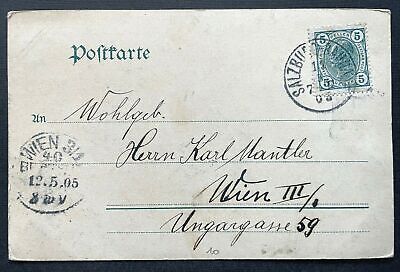 Postkarte
SALZBURG
5 5
An
Wohlgeb.
Herrn Karl Mantler
WIEN 3/1
40
12.5.05
8 V
Wien III/1
Ungargasse 59
10